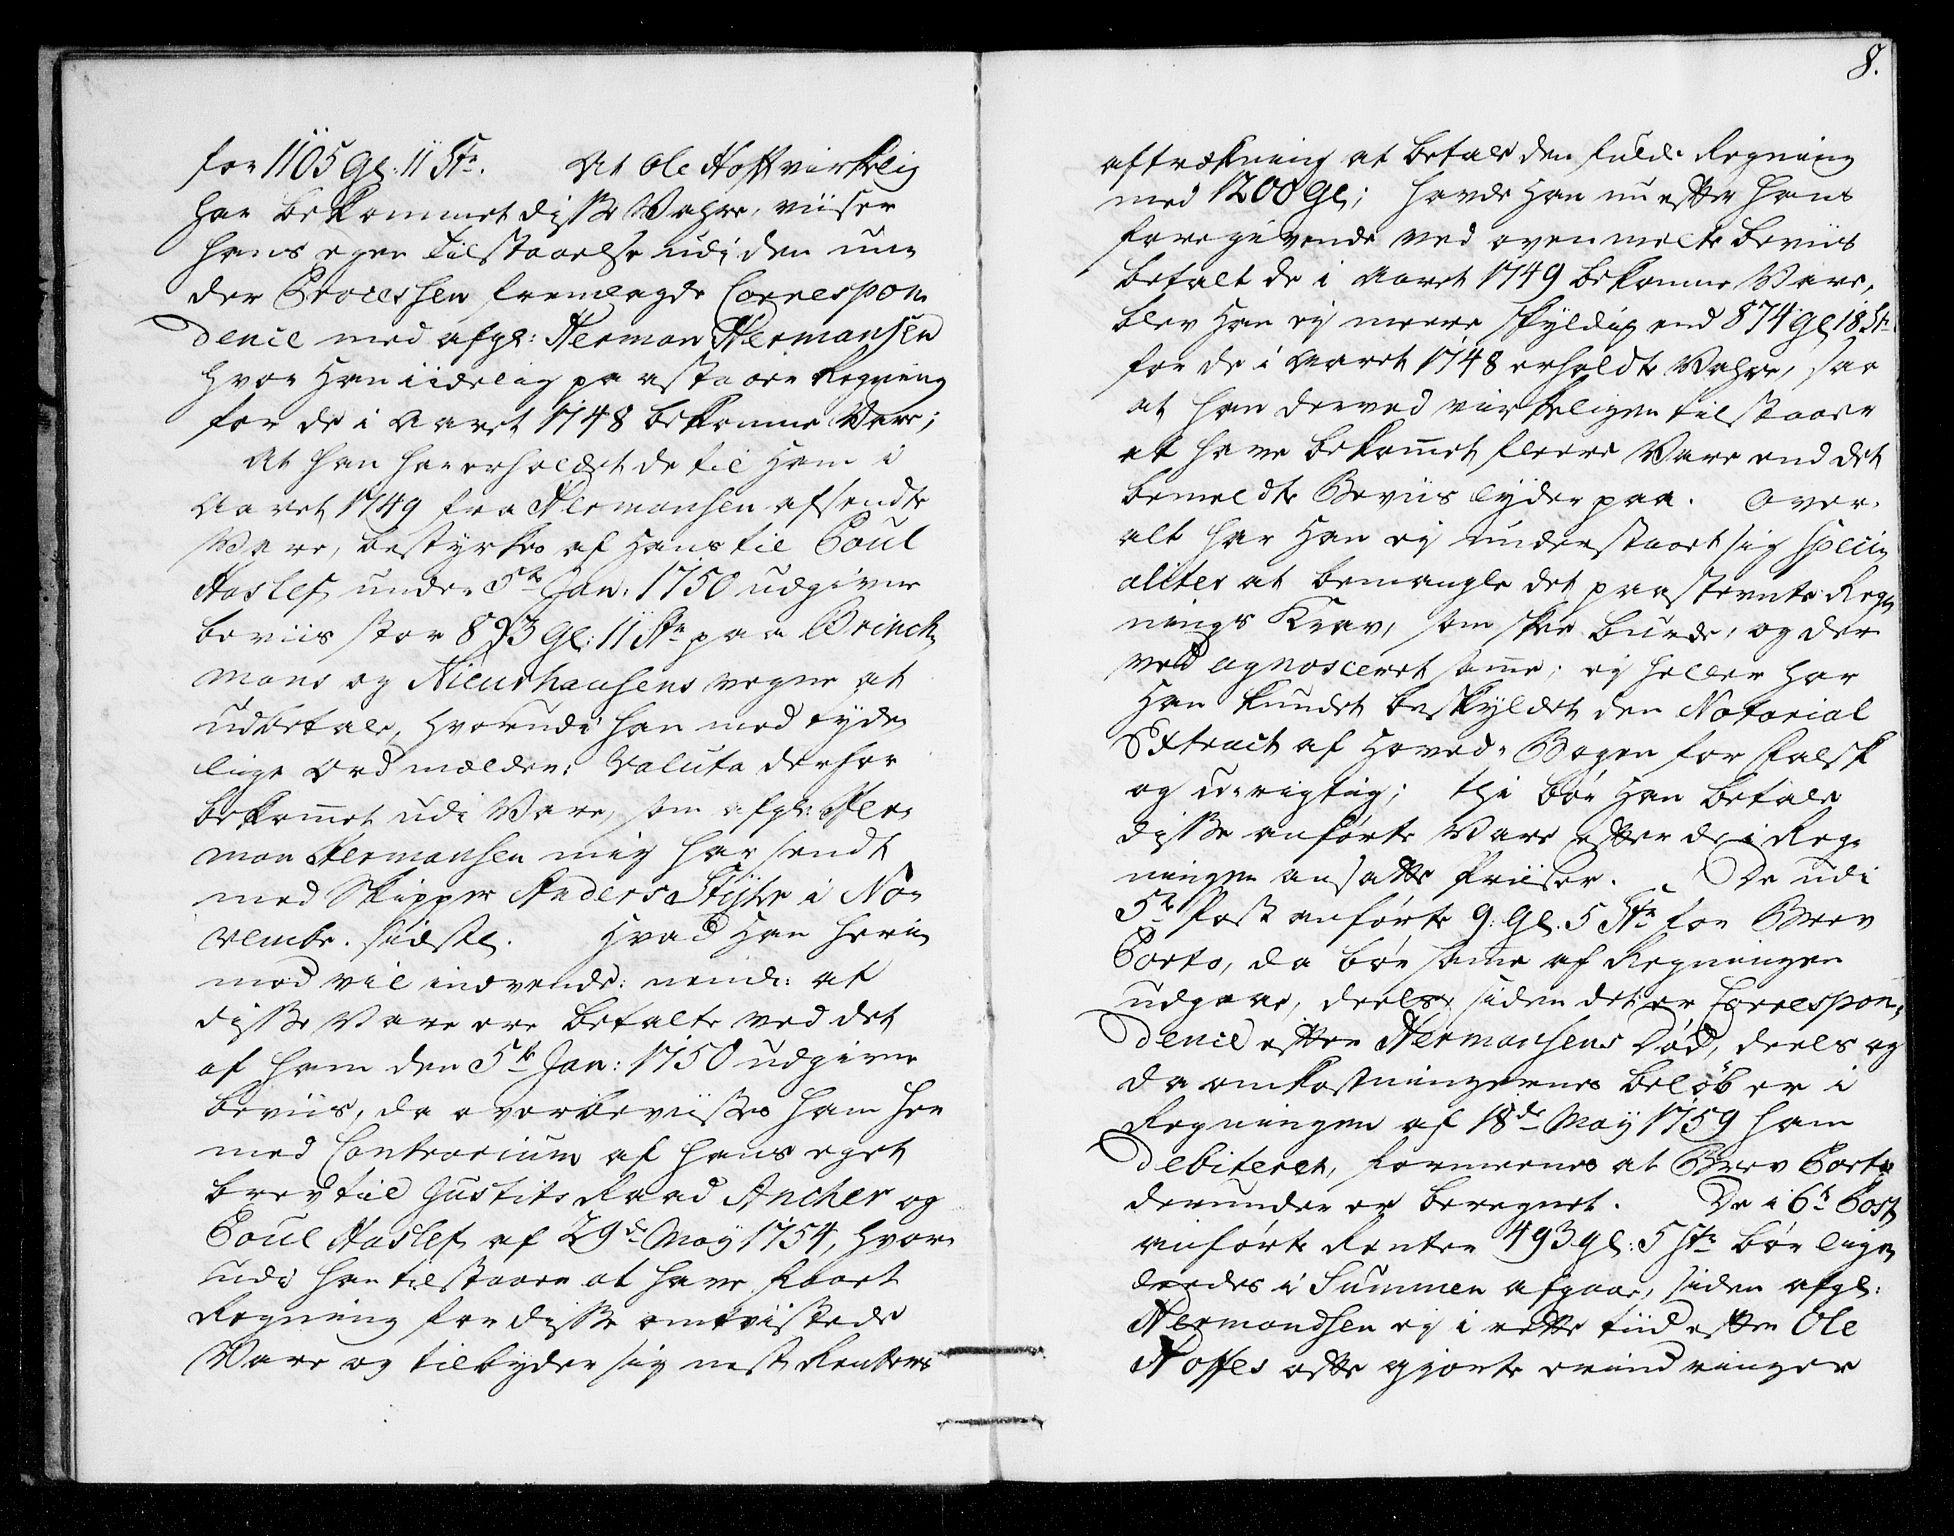 for 1105 Gl: 11 Str. At Ole Hoff virkelig
har bekommet disse Vahre, viiser
hans egen tilstaaelse udj den un-
der Processen fremlagde Correspon-
dence med afgl: Herman Hermansen
hvor Han iidelig paastaaer Regning
for de i Aaret 1748 bekomne Vare;
At han har erholdet de til Ham i
Aaret 1749 fra Hermansen afsendte
Vare, bestyrkes af Hans til Poul
Haslef under 5te Jan: 1750 udgivne
beviis stor 893 Gl: 11 Str paa Brinch-
mans og Nieushausens vegne at
udbetale, hvorudi han med tyde-
lige Ord melder: Valuta derfor
bekom̅et udi Vare, som afgl: Her-
man Hermansen mig har sendt
med Skipper Anders Stiehr i No-
vembr. sidstl. Hvad Han heri-
mod vil indvende: neml: at
disse Vare ere betalte ved det
af ham den 5te Jan: 1750 udgivne
beviis, da overbeviises ham her
med Contrarium af hans eget
brev til Justits Raad Ancher og
Poul Haslef af 29de May 1754, hvor-
udi han tilstaaer at have faaet
Regning for disse omtvistede
Vare og tilbyder sig mod Rentens
8.
aftrækning at betale den fulde Regning
med 1200 Gl; havde Han nu efter hans
foregivende ved ovenmelte beviis
betalt de i Aaret 1749 bekomne Vare,
blev Han ej meere skyldig end 874 Gl 18 Str
for de i Aaret 1748 erholdte Vahre, saa
at han derved virkeligen tilstaaer
at have bekom̅et fleere Vare end det
bemeldte Beviis lyder paa. Over-
alt har Han ej understaaet sig speci-
aliter at bemangle det paastevnte Reg-
nings Krav, som skee burde, og der
ved agnosceret sam̅e; ej heller har
Han kundet beskyldet den Notarial
Extract af Hoved-Bogen for falsk
og urigtig; thi bør Han betale
disse anførte Vare efter de i Reg-
ningen ansatte Priiser. De udi
5te Post anførte 9: Gl. 5 Str for Brev
Porto, da bør sam̅e af Regningen
udgaae, deels siden det er Correspon-
dence efter Hermansens Død, deels og
da omkostningernes beløb er i
Regningen af 18de May 1759 ham
debiteret, formeenes at Brev Porto
derunder er beregnet. De i 6te Post
anførte Renter 493 gl: 5 str bør lige-
leedes i Summen afgaae, siden afgl:
Hermandsen ej i rette tiid efter Ole
Hoffes ofte gjorte erindringer